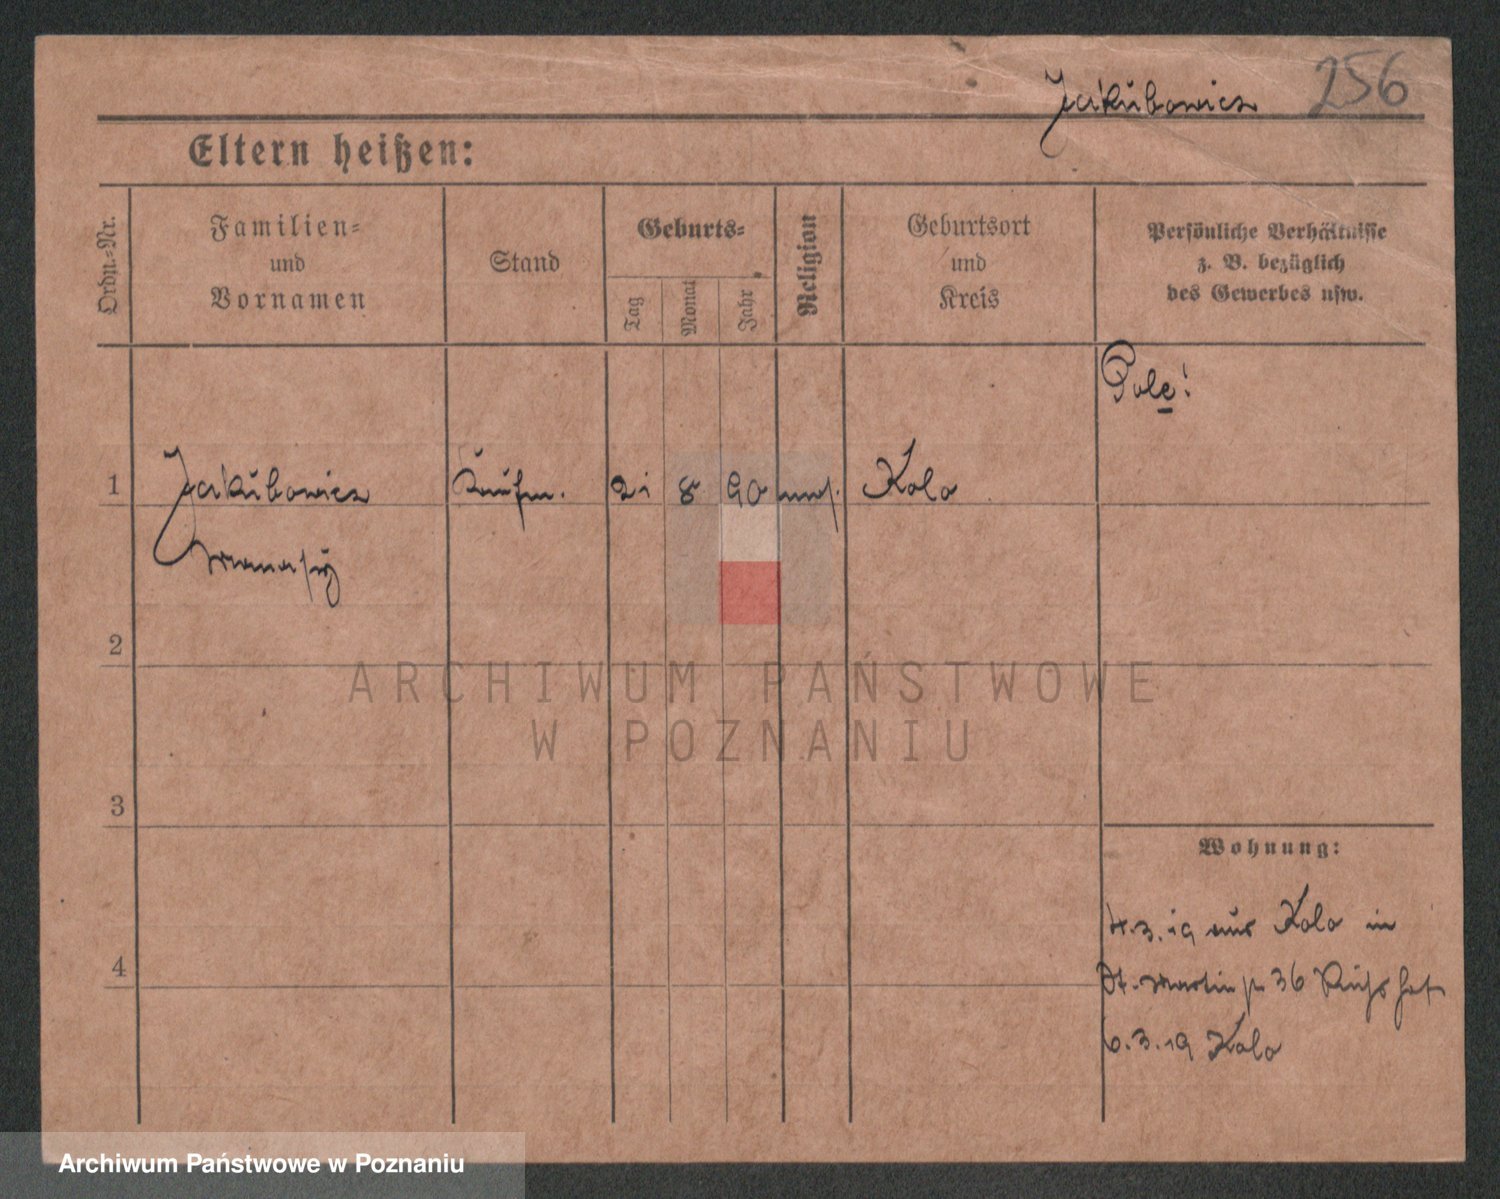 Jakubowicz 256
Eltern heißen:
Ordn.-Nr.
Familien-
und
Vornamen
Stand
Geburts-
Tag
Monat
Jahr
Religion
Geburtsort
und
Kreis
Persönliche Verhältnisse
z. B. bezüglich
des Gewerbes usw.
Pole!
1 Jakubowicz Kaufm. 21 8 90 mos. Kolo
2
3
4
Wohnung:
4.3.19 aus Kolo in
St. Martinstr 36
6.3.19 Kolo
ARCHIWUM PAŃSTWOWE
W POZNANIU
Archiwum Państwowe w Poznaniu